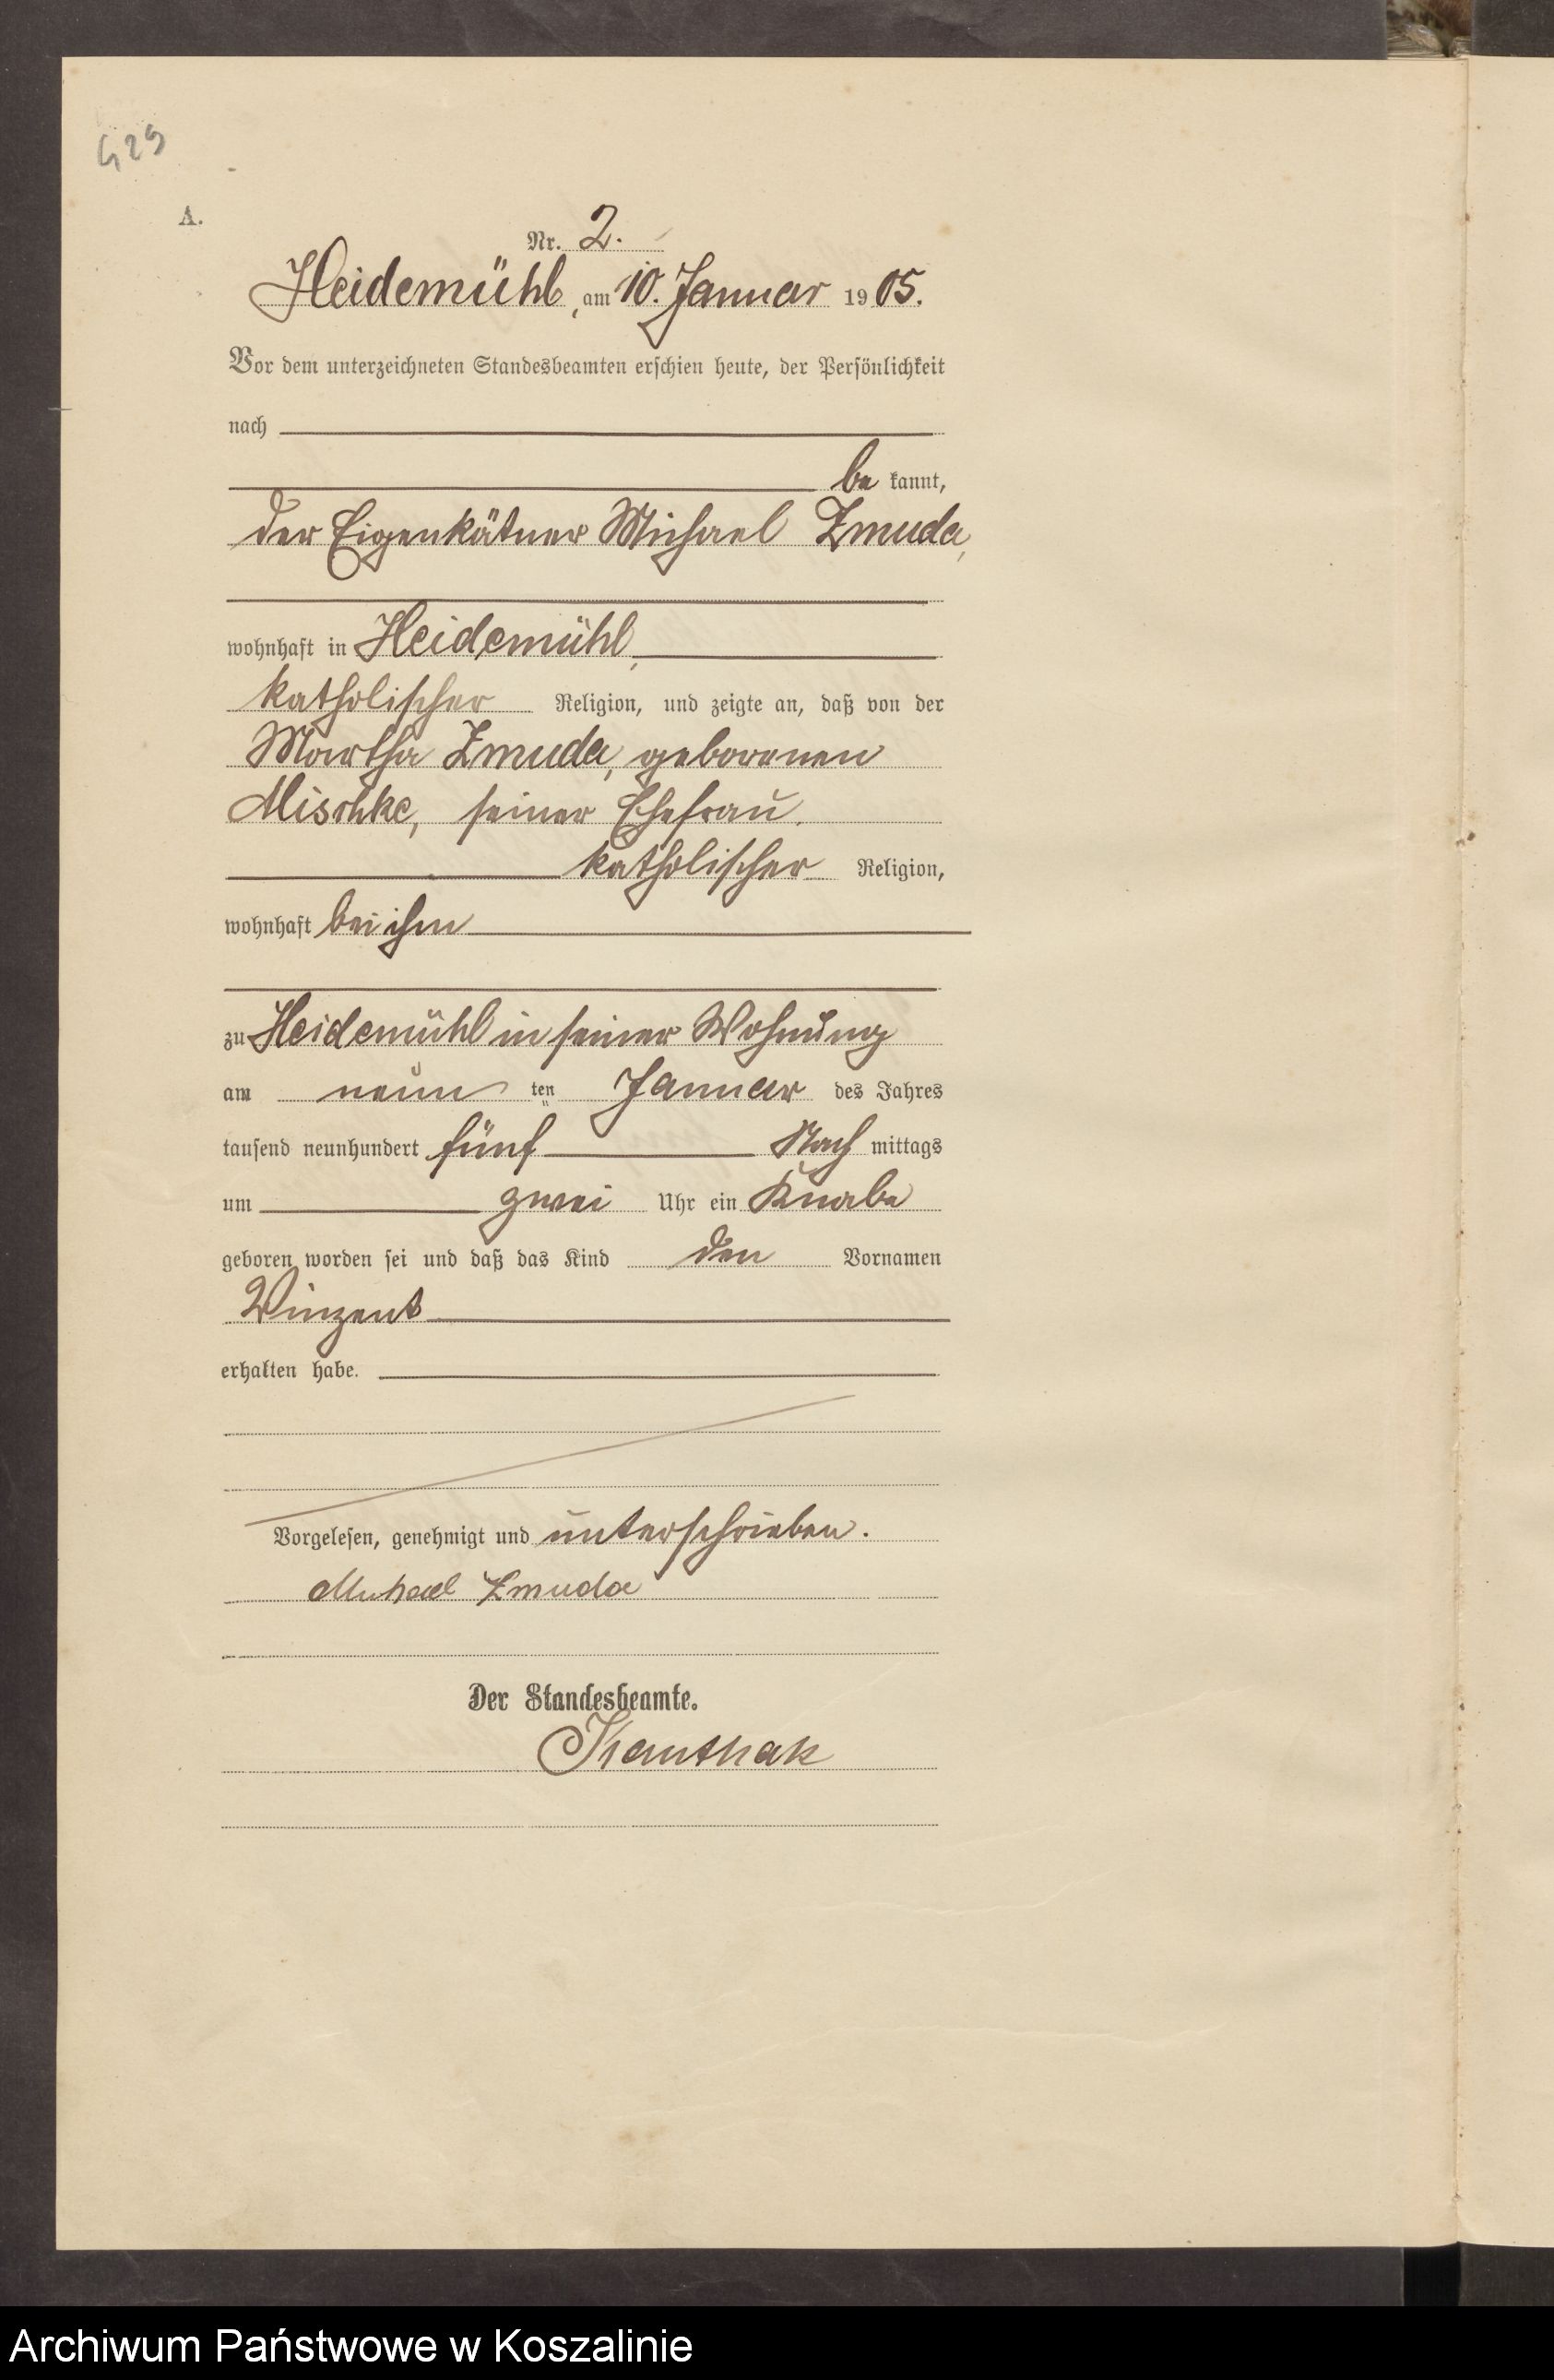 429
A.
Nr. 2.
Heidemühl, am 10. Januar 1905.
Vor dem unterzeichneten Standesbeamten erschien heute, der Persönlichkeit
nach
be kannt,
der Eigenkätner Michael Zmuda,
wohnhaft in Heidemühl,
katholischer Religion, und zeigte an, daß von der
Martha Zmuda, geborenen
Mischke, seiner Ehefrau,
katholischer Religion,
wohnhaft bei ihm
zu Heidemühl in seiner Wohnung
am neun ten Januar des Jahres
tausend neunhundert fünf Nach mittags
um zwei Uhr ein Knabe
geboren worden sei und daß das Kind den Vornamen
Vinzent
erhalten habe.
Vorgelesen, genehmigt und unterschrieben.
Michael Zmuda
Der Standesbeamte.
Kanthak
Archiwum Państwowe w Koszalinie